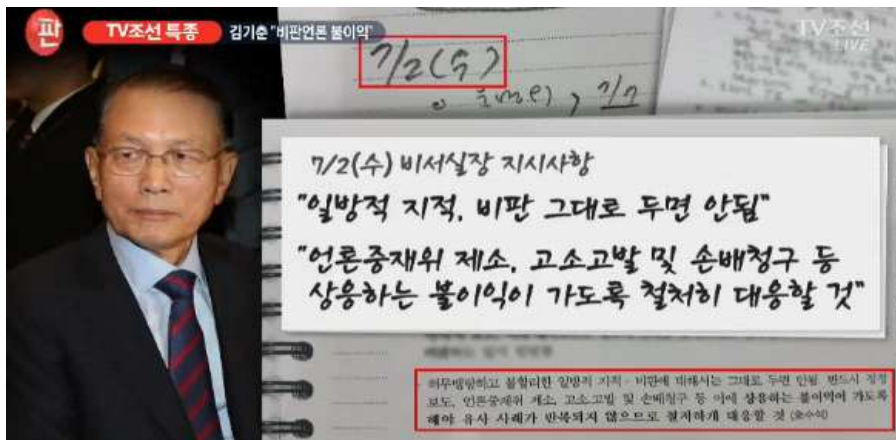 판 TV조선 특종 김기춘 "비판언론 불이익"
TV조선
LIVE
7/2(수)
7/7
7/2(수) 비서실장 지시사항
"일방적 지적, 비판 그대로 두면 안됨"
"언론중재위 제소, 고소고발 및 손배청구 등
상응하는 불이익이 가도록 철저히 대응할 것"
허무맹랑하고 불합리한 일방적 지적·비판에 대해서는 그대로 두면 안됨. 반드시 정정
보도, 언론중재위 제소, 고소·고발 및 손배청구 등 이에 상응하는 불이익이 가도록
해야 유사 사례가 반복되지 않으므로 철저하게 대응할 것